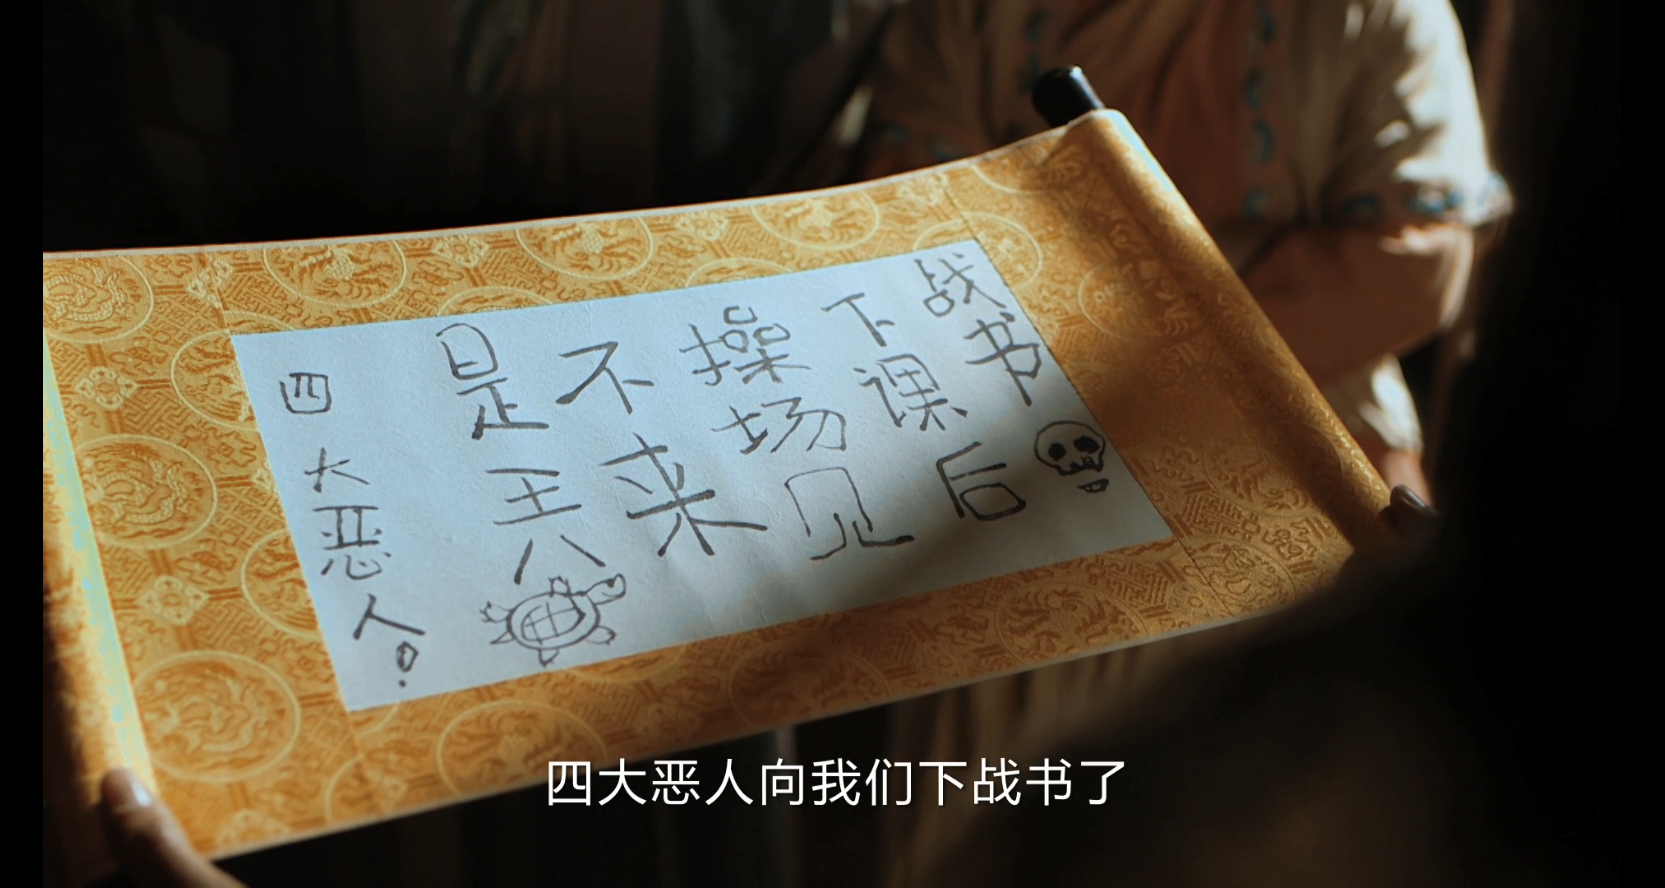 战书
下课后
操场见
不来
是王八
四大恶人。
四大恶人向我们下战书了